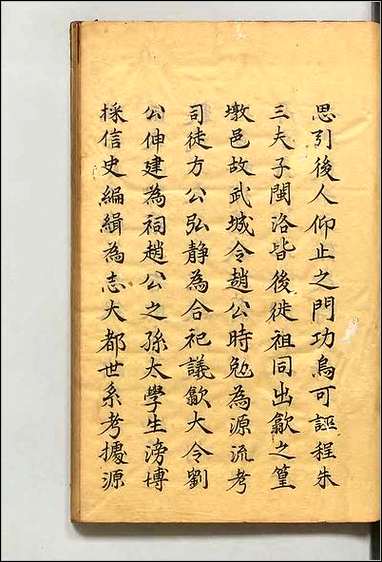 思引後人仰止之門功烏可誣程朱
三夫子閩洛皆後徙祖同出歙之篁
墩邑故武城令趙公時勉為源流考
司徒方公弘靜為合祀議歙大令劉
公伸建為祠趙公之孫太學生滂博
採信史編緝為志大都世系考擾源